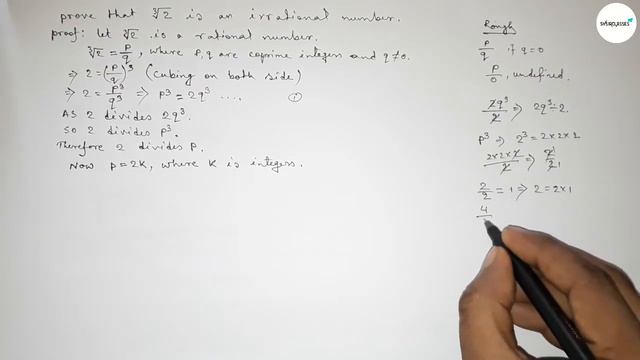 prove that ∛2 is an irrational number.
proof: let ∛2 is a rational number.
∛2 = p/q, where p,q are coprime integers and q≠0.
⇒ 2 = (p/q)³ (cubing on both side)
⇒ 2 = p³/q³ ⇒ p³ = 2q³ .... (i)
As 2 divides 2q³.
So 2 divides p³.
Therefore 2 divides p.
Now p = 2k, where k is integers.
Rough
p/q if q=0
p/0, undefined.
2q³/2 ⇒ 2q³÷2.
p³ ⇒ 2³ = 2×2×2
2×2×2/2 ⇒ 2¹/2 1
2/2 = 1 ⇒ 2 = 2×1
4